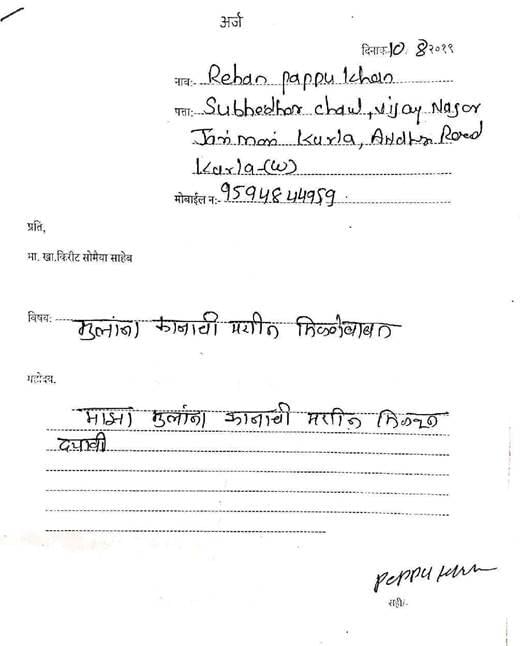 अर्ज
दिनाक 10/8२०१९
नाव:- Rehan pappu khan
पत्ता:- Subhedhar chawl, vijay Nagar
Jarimari kurla, Andhra Road
Kurla-(W)
मोबाईल न:- 9594844959
प्रति,
मा. खा.किरीट सोमैया साहेब
विषय: मुलांना कानाची मशीन मिळणेबाबत
महोदय,
माझा मुलांना कानाची मशीन मिळवून
दयावी
Pappu khan
सही/-